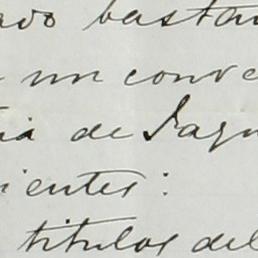 ado bastan
un conve
ia de Sagu
ientes:
titulos del